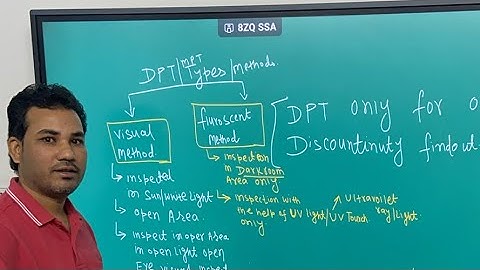 8ZQ SSA
DPT/MPT Types/Methods.
Visual Method.
fluroscent Method
→ inspected in Sun/white light
→ open Area.
→ inspect in oper Area
in open light open
Eye visual inspect
→ inspection in DARKROOM Area only
→ inspection with the help of UV light/UV Touch only
Ultravoilet ray/light.
DPT only for o
Discountinuity findout